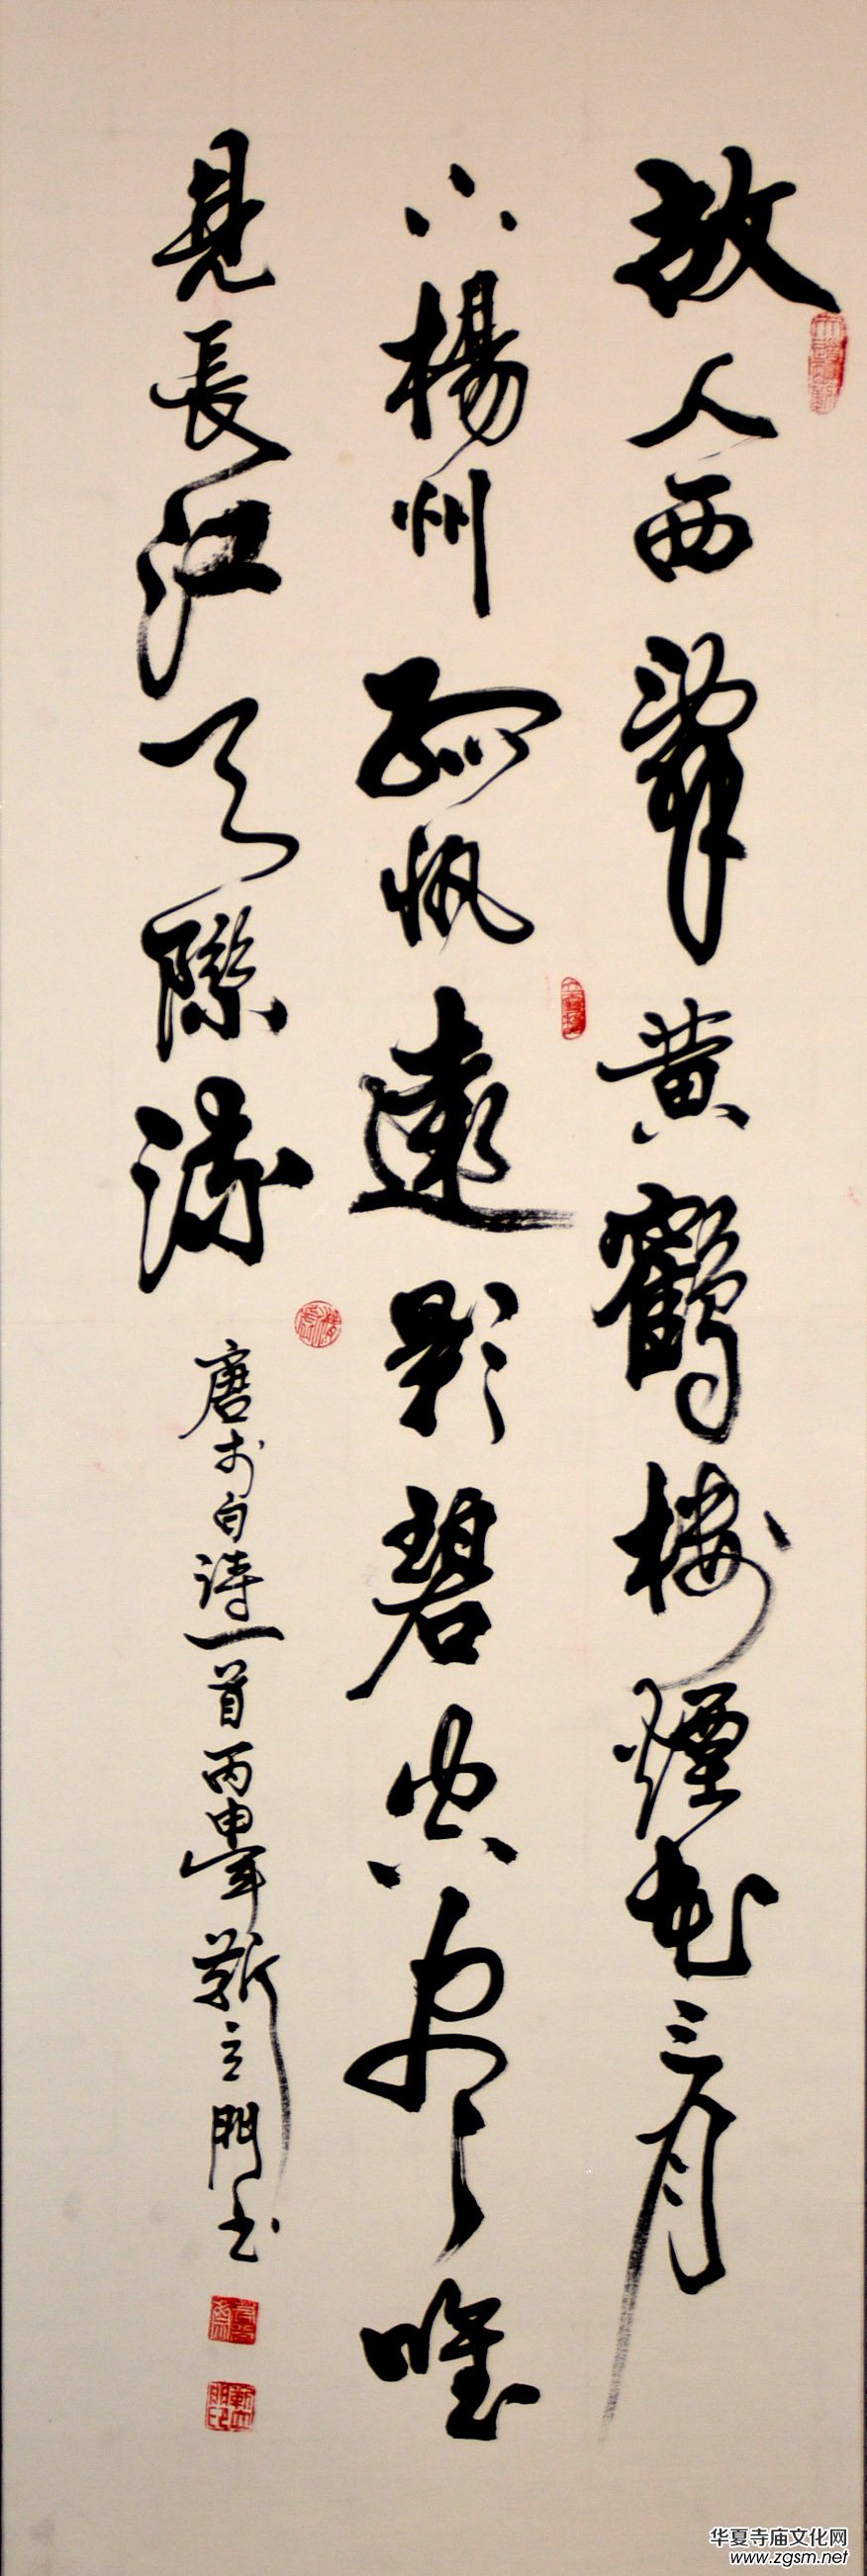 故人西辭黄鶴楼煙花三月
下楊州孤帆遠影碧空盡唯
見長江天際流
唐李白诗一首丙申年靳立門书
华夏寺庙文化网
www.zgsm.net